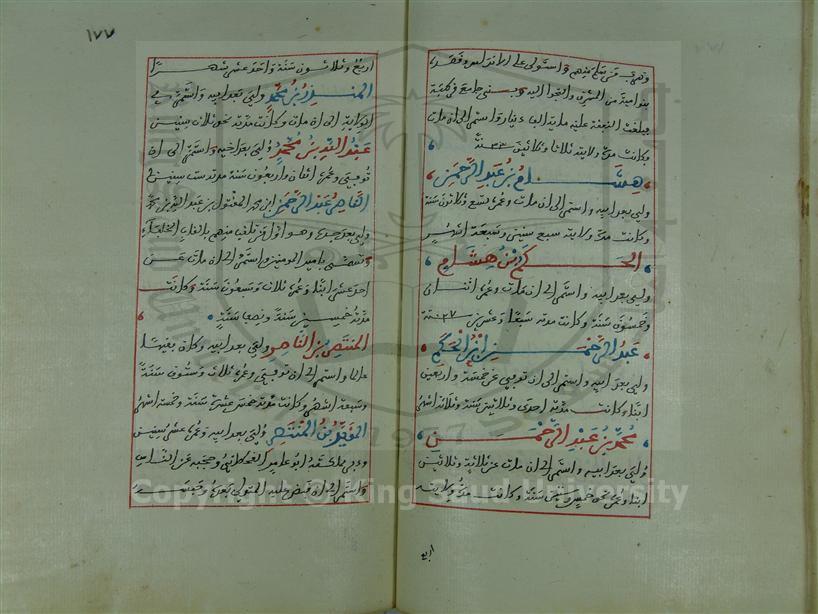 بنو امية من الشرق والتجوا اليه وبنى جامع قرطبة
وكانت مدة ولايته ثلاثا وثلاثين سنة
هشام بن عبد الرحمن
ولي بعد ابيه واستمر الى ان مات وعمره تسع وثلاثون سنة
وكانت مدة ولايته سبع سنين وسبعة اشهر
الحكم بن هشام
ولي بعد ابيه واستمر الى ان مات وعمره اثنتان
وخمسون سنة وكانت مدته سبعا وعشرين سنة
عبد الرحمن ابن الحكم
ولي بعد ابيه واستمر الى ان توفي عن خمسة واربعين
ابنا وكانت مدته احدى وثلاثين سنة وثلاثة اشهر
محمد بن عبد الرحمن
ولي بعد ابيه واستمر الى ان مات عن ثلاثة وثلاثين
ابنا وعمره نحو خمس وستين سنة وكانت مدة ولايته
اربع
١٧٧
اربع وثلاثون سنة واحد عشر شهرا
المنذر بن محمد ولي بعد ابيه واستمر في
الولاية الى ان مات وكانت مدته نحو ثلاث سنين
عبد الله بن محمد ولي بعد اخيه واستمر الى ان
توفي وعمره اثنان واربعون سنة
الناصر عبد الرحمن ابن محمد المقتول بن عبد الله بن محمد
ولي بعد جده وهو اول من تلقب منهم بالقاب الخلفاء
وتسمى بامير المومنين واستمر الى ان مات عن
احد عشر ابنا وعمره ثلاث وسبعون سنة وكانت
مدته خمسين سنة ونصف سنة
المنتصر بن الناصر ولي بعد ابيه وكان فقيها
عالما واستمر الى ان توفي وعمره ثلاث وستون سنة
وسبعة اشهر وكانت مدته خمس عشرة سنة وخمسة اشهر
المؤيد بن المنتصر ولي بعد ابيه وعمره عشر سنين
ابو عامر وحجبه عن الناس
واستمر الى ان قبض عليه المتولي بعده وحبسه
Copyright © King Saud University
1957